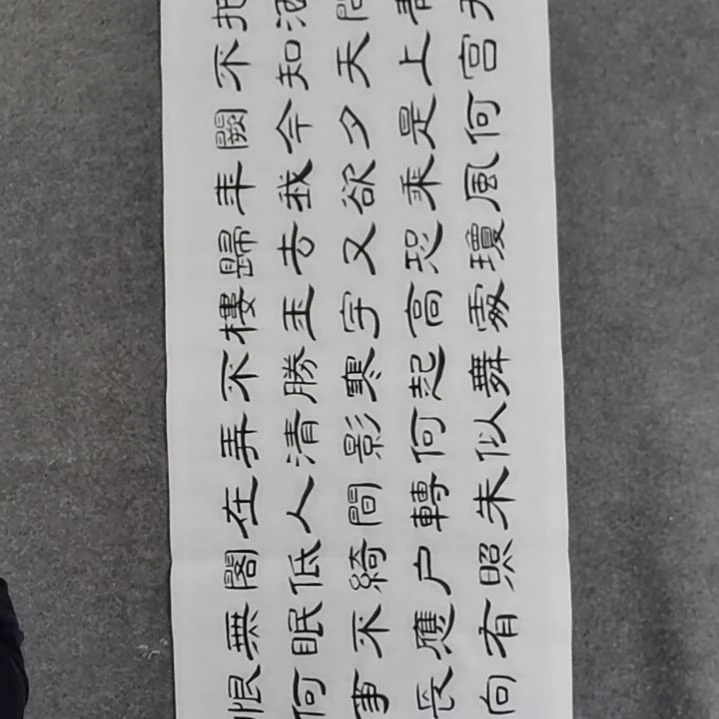 把酒問青天
不知天上宮
闕今夕是何
年我欲乘風
歸去又恐瓊
樓玉宇高處
不勝寒起舞
弄清影何似
在人間轉朱
閣低綺户照
無眠不應有
恨何事長向